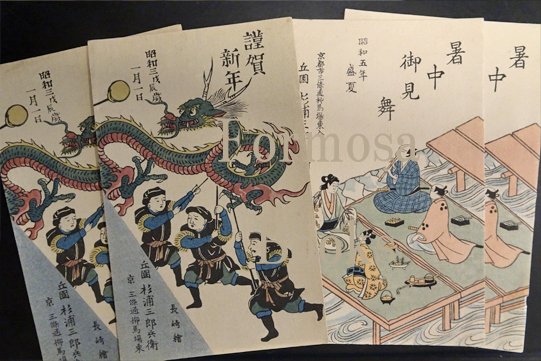 昭和三戊辰歳
一月一日
謹賀
新年
昭和三戊辰歳
一月一日
丘園 杉浦三郎兵衛
京 三條通柳馬場東
長崎繪
丘園 杉浦三郎兵衛
京 三條通柳馬場東
暑中
御見舞
昭和五年
盛夏
京都市三條通柳馬場東入
丘園 杉浦三
暑中
Formosa